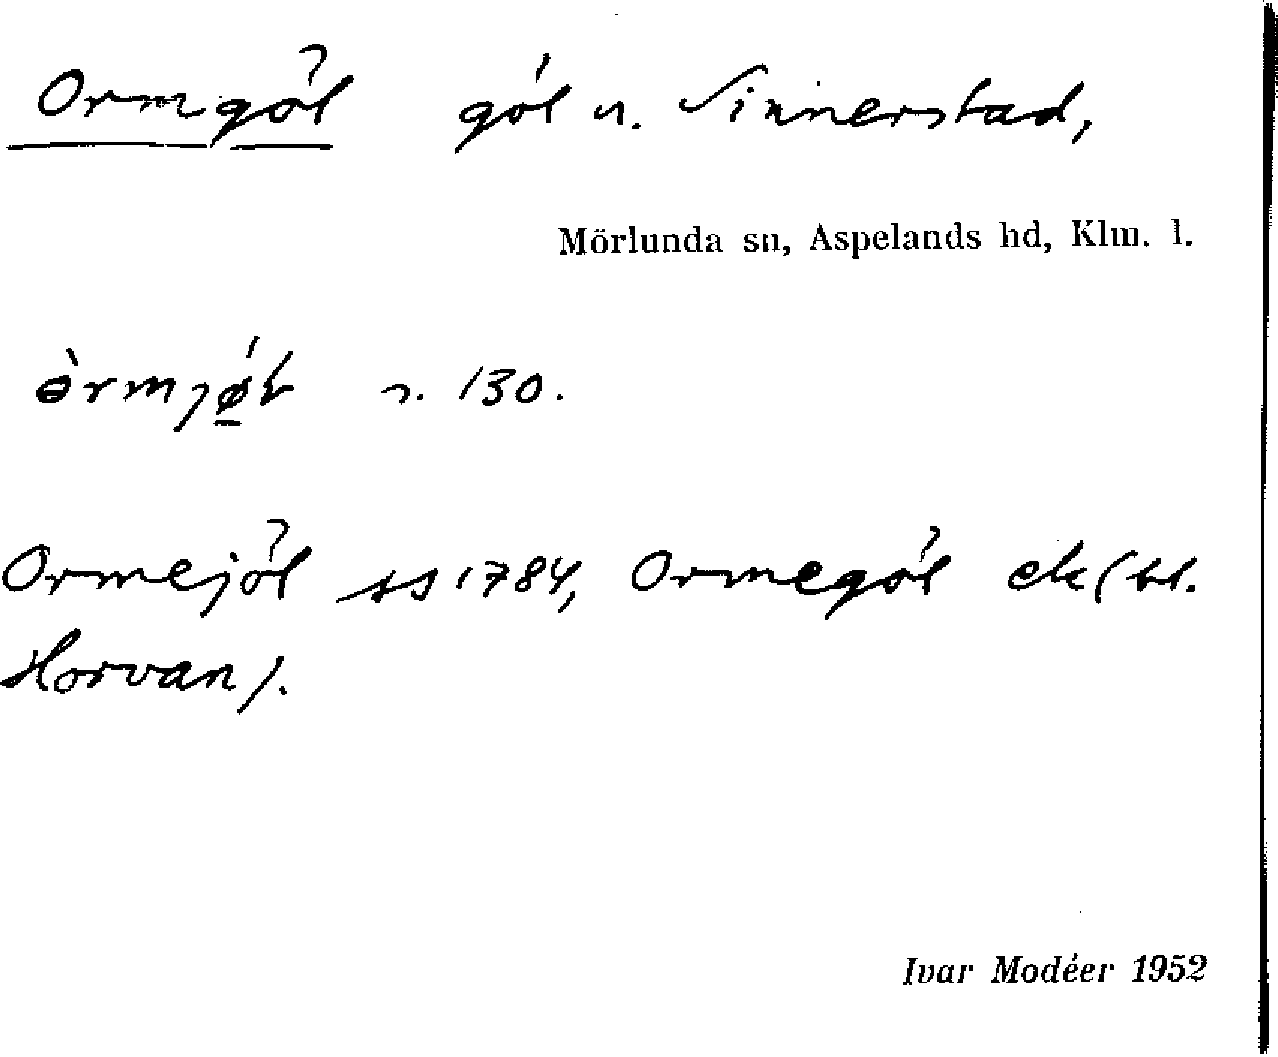 Ormgöl göl u. Sinnerstad,
Mörlunda sn, Aspelands hd, Klm. l.
130.
Ormejöl ss 1784, Ormegöl ek (bl.
Horvan).
Ivar Modéer 1952